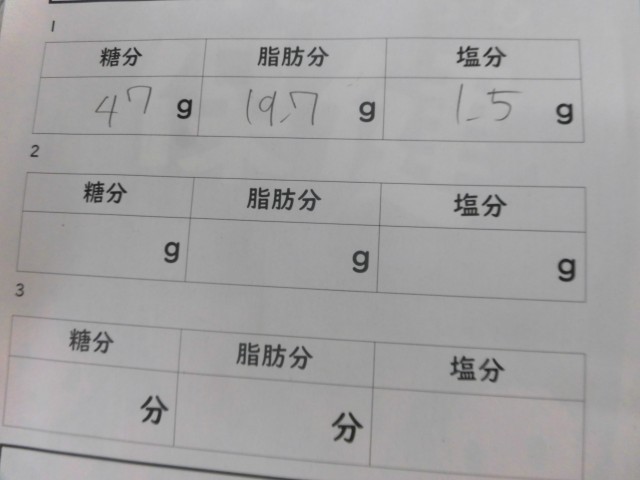 1
糖分 脂肪分 塩分
47 g 19.7 g 1.5 g
2
糖分 脂肪分 塩分
g g g
3
糖分 脂肪分 塩分
分 分